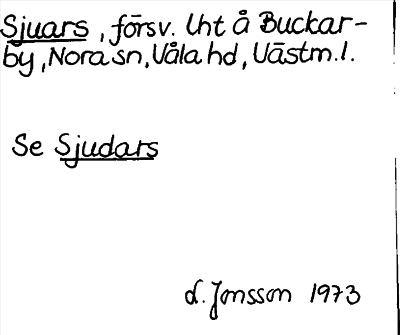 Sjuars, försv. Uht å Buckar-
by, Nora sn, Våla hd, Västm.l.
Se Sjudars
L. Jonsson 1973